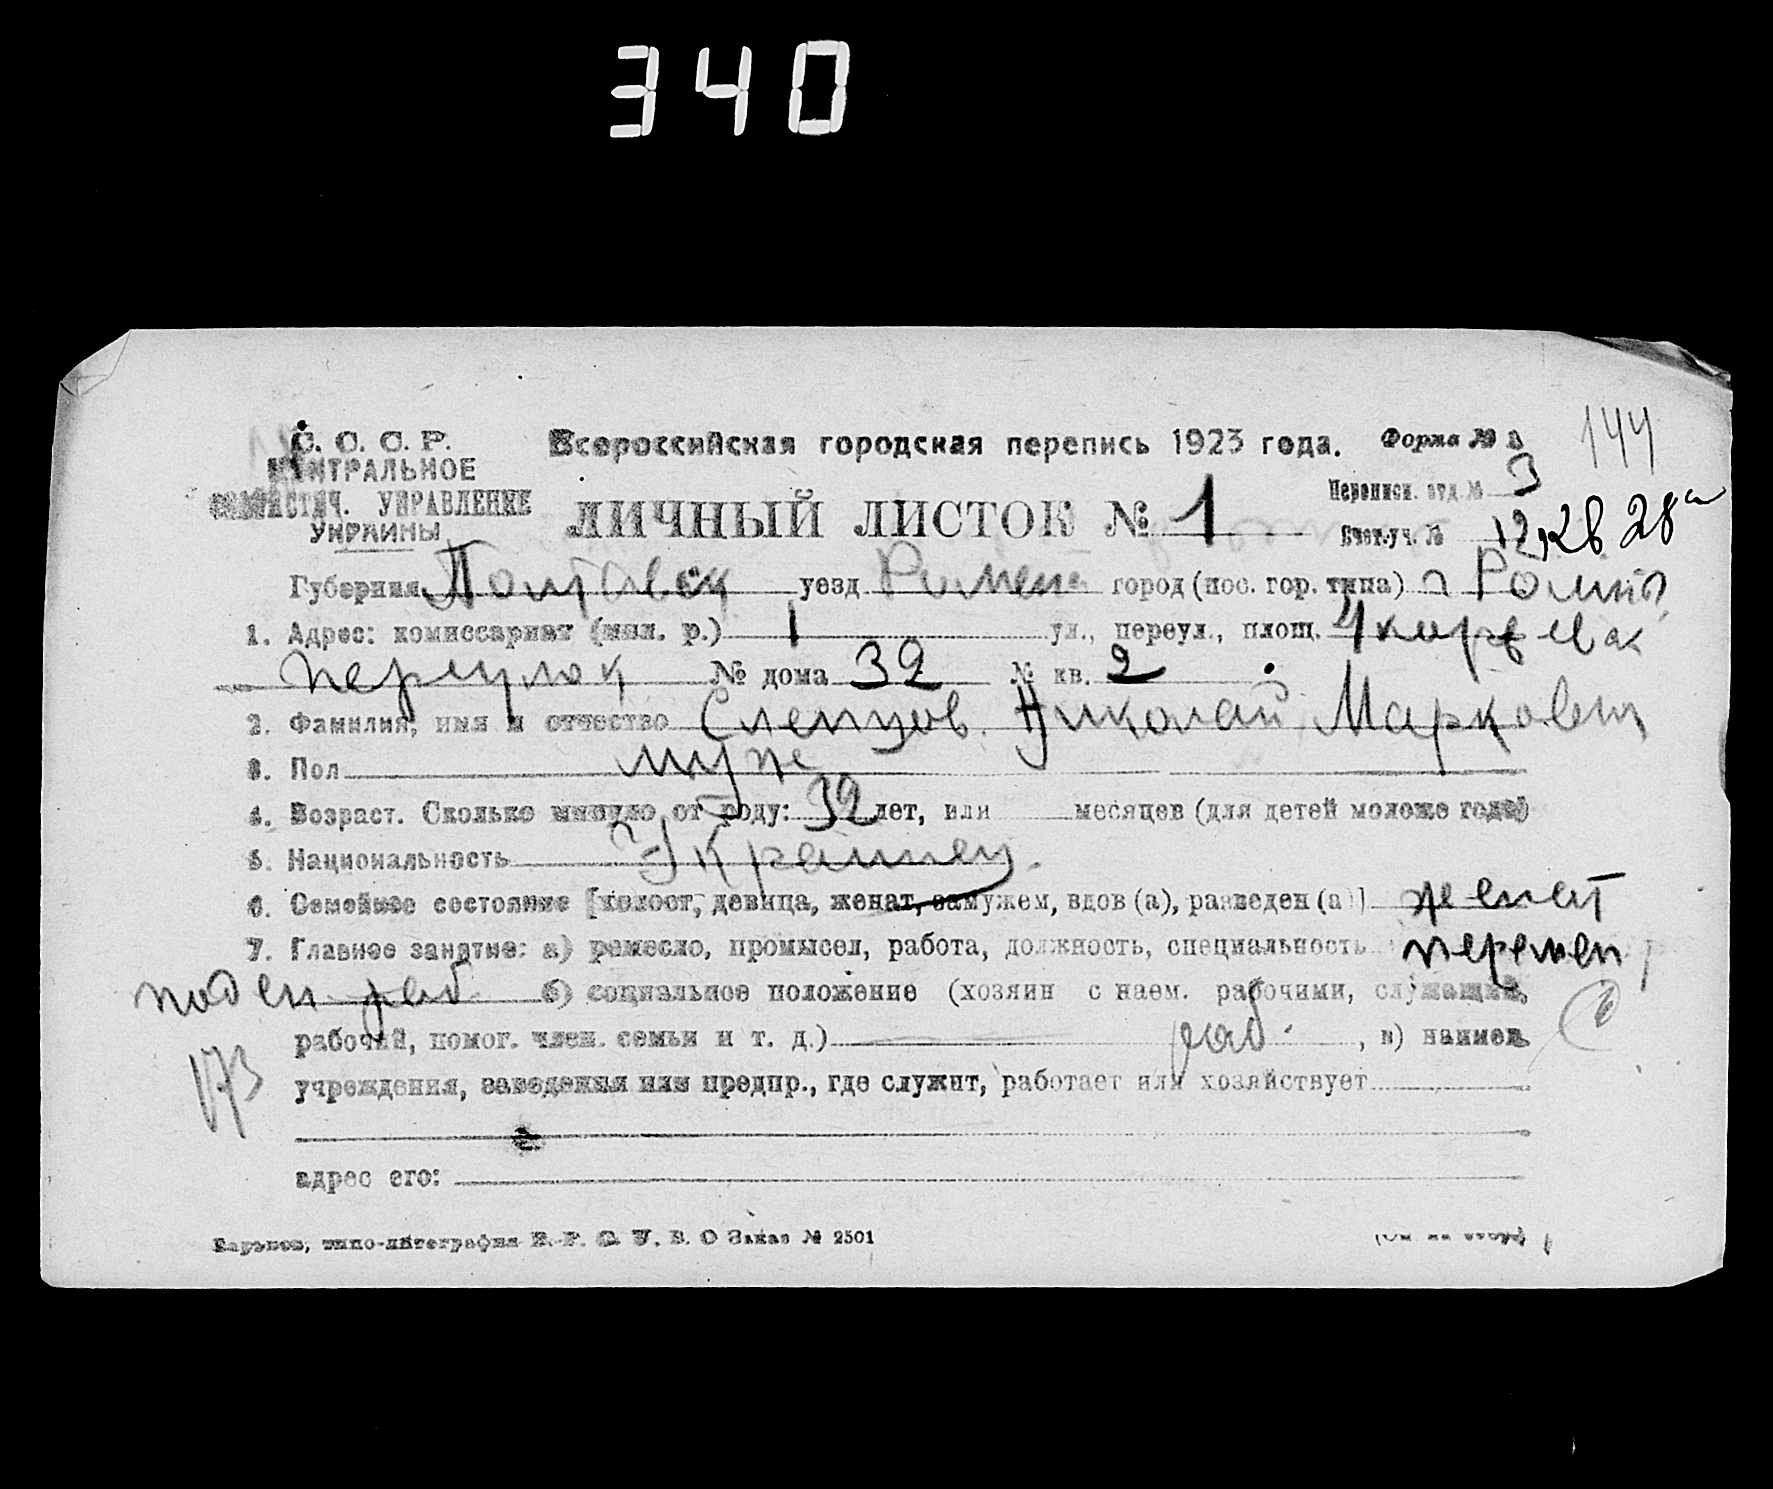 340
144
С. С. С. Р. Всероссийская городская перепись 1923 года. Форма №
ЦЕНТРАЛЬНОЕ
СТАТИСТИЧ. УПРАВЛЕНИЕ ЛИЧНЫЙ ЛИСТОК № 1 Переписн. отд. № 3
УКРАИНЫ Счет. уч. № 12, кв 28а
Губерния Полтавск уезд Роменс город (пос. гор. типа) г Ромны
1. Адрес: комиссариат (мил. р.) 1 ул., переул., площ. 4
переулок № дома 32 № кв. 2
2. Фамилия, имя и отчество Слепцов Николай Маркович
3. Пол муж
4. Возраст. Сколько минуло от роду: 32 лет, или месяцев (для детей моложе года)
5. Национальность Украинец
6. Семейное состояние [холост, девица, женат, замужем, вдов (а), разведен (а)] женат
7. Главное занятие: а) ремесло, промысел, работа, должность, специальность
поден раб б) социальное положение (хозяин с наем. рабочими, служащий,
рабочий, помог. член. семьи и т. д.) раб. , в) наимен.
173 учреждения, заведения или предпр., где служит, работает или хозяйствует
адрес его:
Харьков, типо-литография Заказ № 2501 (См на обор)